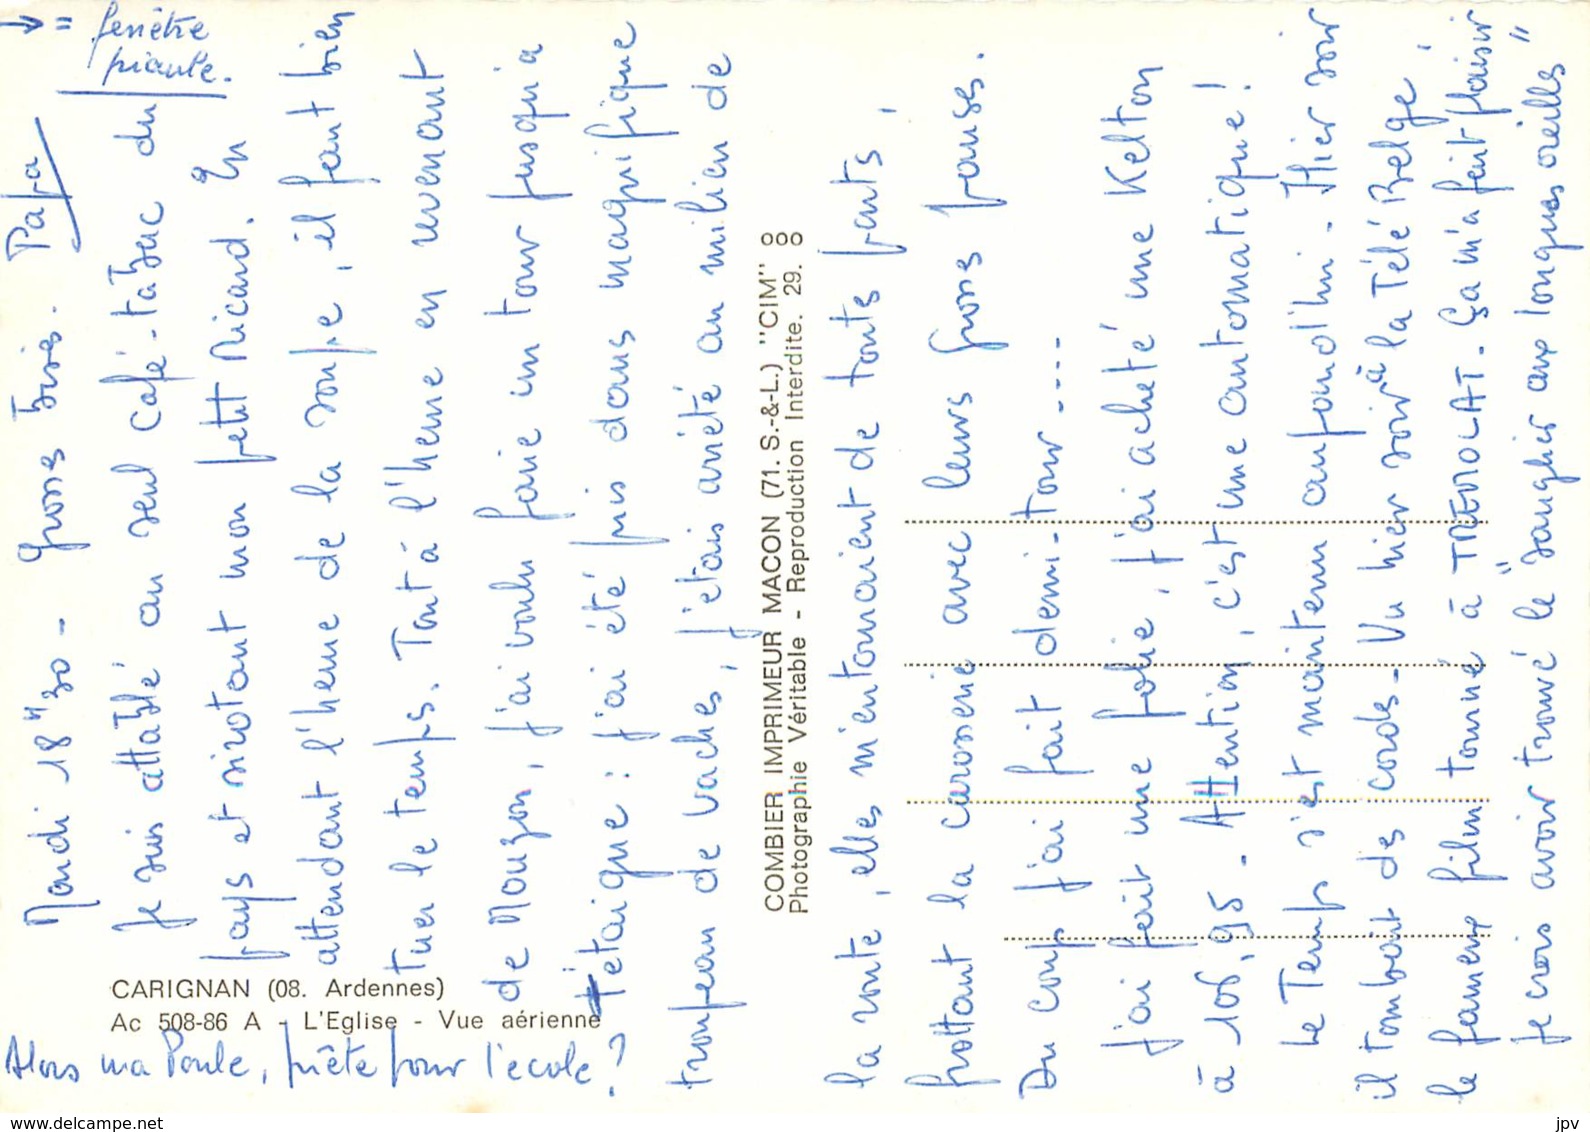 ↓ = fenêtre
piaule.
Mardi 18 H 30 - Grosses bises. Papa
Je suis attablé au seul café-tabac du
pays et sirotant mon petit Ricard. En
attendant l'heure de la soupe, il faut bien
tuer le temps. Tout à l'heure en revenant
de Mouzon, j'ai voulu faire un tour jusqu'à
Tétaigne : j'ai été pris dans magnifique
troupeau de vaches, j'étais arrêté au milieu de
la route, elles m'entouraient de touts parts,
frottant la carosserie avec leurs grosses panses.
Du coup j'ai fait demi-tour ----
J'ai fait une folie, j'ai acheté une Kelton
à 106,95 - Attention, c'est une automatique !
Le Temps s'est maintenu aujourd'hui - Hier soir
il tombait des cords - Vu hier soir à la Télé Belge,
le fameux film tourné à TREMOLAT. Ça m'a fait plaisir
Je crois avoir trouvé le "sanglier aux longues oreilles"
Alors ma Poule, prête pour l'école ?
CARIGNAN (08. Ardennes)
Ac 508-86 A - L'Eglise - Vue aérienne
COMBIER IMPRIMEUR MACON (71. S.-&-L.) "CIM"
Photographie Véritable - Reproduction Interdite. 29.
www.delcampe.net
jpv